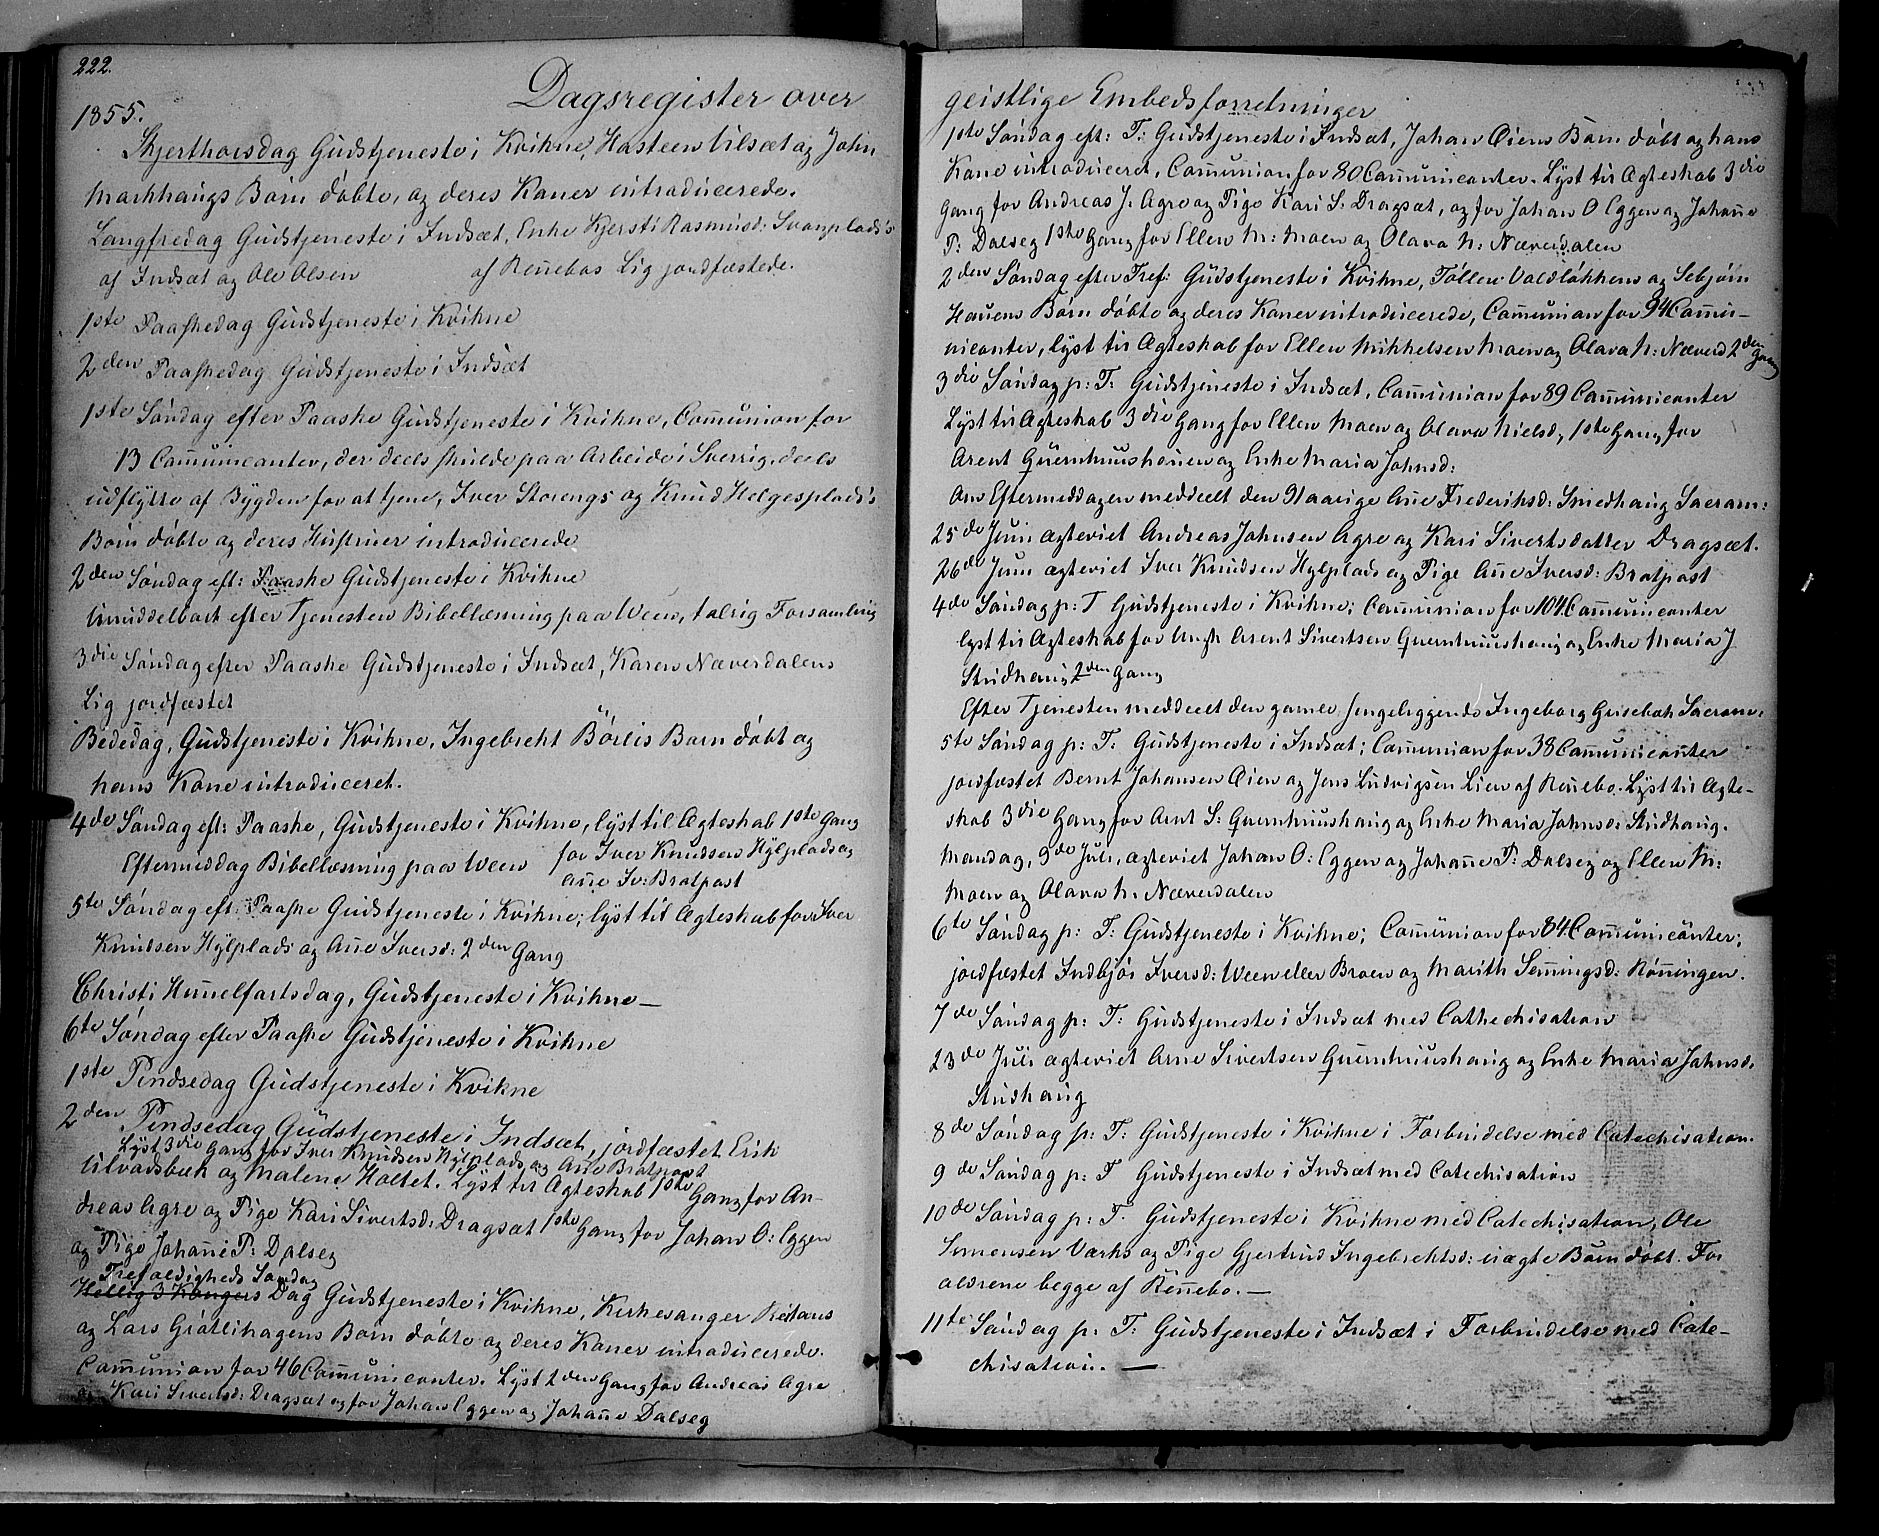 222.
Dagsregister over
1855.
Skjerthorsdag Gudstjeneste i Kvikne, Hasteen Ulsæt og John
Markhaugs Børn døbte, og deres Koner introducerede.
Langfredag Gudstjeneste i Indsæt, Enke Kjersti Rasmusd: Svanplads's
af Indsæt og Ole Olsen af Rennebos Lig jordfæstede.
1ste Paaskedag Gudstjeneste i Kvikne
2den Paaskedag Gudstjeneste i Indsæt
1ste Søndag efter Paaske Gudstjeneste i Kvikne, Com̄union for
13 Com̄unicanter, der deels skulde paa Arbeide i Sverrig, deels
udflytte af Bygden for at tjene, Iver Storengs og Knud Helgesplads's
Børn døbte og deres Hustruer introducerede
2den Søndag eft: Paaske Gudstjeneste i Kvikne
Umiddelbart efter Tjenesten Bibellæsning paa Ween, talrig Forsamling
3die Søndag efter Paaske Gudstjeneste i Indsæt, Karen Næverdalens
Lig jordfæstet
Bededag, Gudstjeneste i Kvikne, Ingebreht Börlis Barn døbt og
hans Kone introduceret.
4de Søndag eft: Paaske, Gudstjeneste i Kvikne, lyst til Ægteskab 1ste Gang
for Iver Knudsen Hylplads og
Eftermiddag Bibellæsning paa Ween
Ane Iv: Bratpost
5te Søndag eft: Paaske Gudstjeneste i Kvikne; lyst til Ægteskab for Iver
Knudsen Hylplads og Ane Iversd: 2den Gang
Christi Him̄elfartsdag, Gudstjeneste i Kvikne —
6te Søndag efter Paaske Gudstjeneste i Kvikne
1ste Pindsedag Gudstjeneste i Kvikne
2den Pindsedag Gudstjeneste i Indsæt, jordfæstet Erik
Lyst 3die Gang for Iver Knudsen Hylplads og Ane Bratpost
Ulvådsbæk og Malene Holtet. Lyst til Ægteskab 1ste Gang for An-
dreas Agre og Pige Kari Sivertsd: Dragsæt 1ste Gang for Johan O: Eggen
og Pige Johan̄e P: Dalseg
Trefoldigheds Søndag
Hellig 3 Kongers Dag Gudstjeneste i Kvikne, Kirkesanger
og Lars Grøtlihagens Børn døbte og deres Koner introducerede.
Com̄union for 46 Com̄unicanter. Lyst 2den Gang for Andreas Agre
og Kari Sivertsd: Dragsæt og for Johan Eggen og Johan̄e Dalseg
geistlige Embedsforretninger
1ste Søndag eft: T: Gudstjeneste i Indsæt, Johan Øiens Barn døbt og hans
Kone introduceret, Com̄union for 80 Com̄unicanter. Lyst til Ægteskab 3die
Gang for Andreas J. Agre og Pige Kari S: Dragsæt, og for Johan O Eggen og Johan̄e
P: Dalseg 1ste Gang for Ellen M: Moen og Olava N: Næverdalen
2den Søndag efter Tref: Gudstjeneste i Kvikne, Tøllev Voldløkkens og Sebjørn
Hauens Børn døbte og deres Koner introducerede, Com̄union for 94 Com̄u-
nicanter, lyst til Ægteskab for Ellen Mikkelsen Moen og Olava N: Næverd 2den Gang
3die Søndag p: T: Gudstjeneste i Indsæt, Com̄union for 89 Com̄unicanter
Lyst til Ægteskab 3die Gang for Ellen Moen og Olava Nielsd, 1ste Gang for
Arent Quernhuushouen og Enke Maria Johnsd:
Om Eftermiddagen meddeelt den 91 aarige Ane Frederiksd: Smedhaug Sacram:
25de Juni ægteviet Andreas Johnsen Agre og Kari Sivertsdatter Dragsæt.
26de Juni ægteviet Iver Knudsen Hylplads og Pige Ane Iversd: Bratpost
4de Søndag p: T Gudstjeneste i Kvikne; Com̄union for 104 Com̄unicanter
lyst til Ægteskab for Arent Sivertsen Quernhuushaug og Enke Maria J
Studhaug 2den Gang
Efter Tjenesten meddeelt den gamle sengeliggende Ingeborg Grisebæk Sacram:
5te Søndag p: T: Gudstjeneste i Indsæt; Com̄union for 38 Com̄unicanter
jordfæstet Bernt Johansen Øien og Jens Ludvigsen Lien af Rennebo. Lyst til Ægte-
skab 3die Gang for Arnt S: Quernhuushaug og Enke Maria Johnsd: Studhaug.
Mandag, 9de Juli, ægteviet Johan O: Eggen og Johan̄e P: Dalseg og Ellen M:
Moen og Olava N. Næverdalen
6te Søndag p: T: Gudstjeneste i Kvikne; Com̄union for 84 Com̄unicanter;
jordfæstet Indbjør Iversd: Ween eller Broen og Marith Sem̄ingsd: Røn̄ingen.
7de Søndag p: T: Gudstjeneste i Indsæt med Cathechisation
23de Juli ægteviet Arne Sivertsen Quernhuushaug og Enke Maria Johnsd.
Studhaug
8de Søndag p: T: Gudstjeneste i Kvikne i Forbindelse med Catechisation.
9de Søndag p: T Gudstjeneste i Indsæt med Catechisation
10de Søndag p: T. Gudstjeneste i Kvikne med Catechisation, Ole
Simensen Værks og Pige Gjertrud Ingebrehtsd: uægte Barn døbt. For
ældrene begge af Rennebo. —
11te Søndag p: T: Gudstjeneste i Indsæt i Forbindelse med Cate-
chisation. —